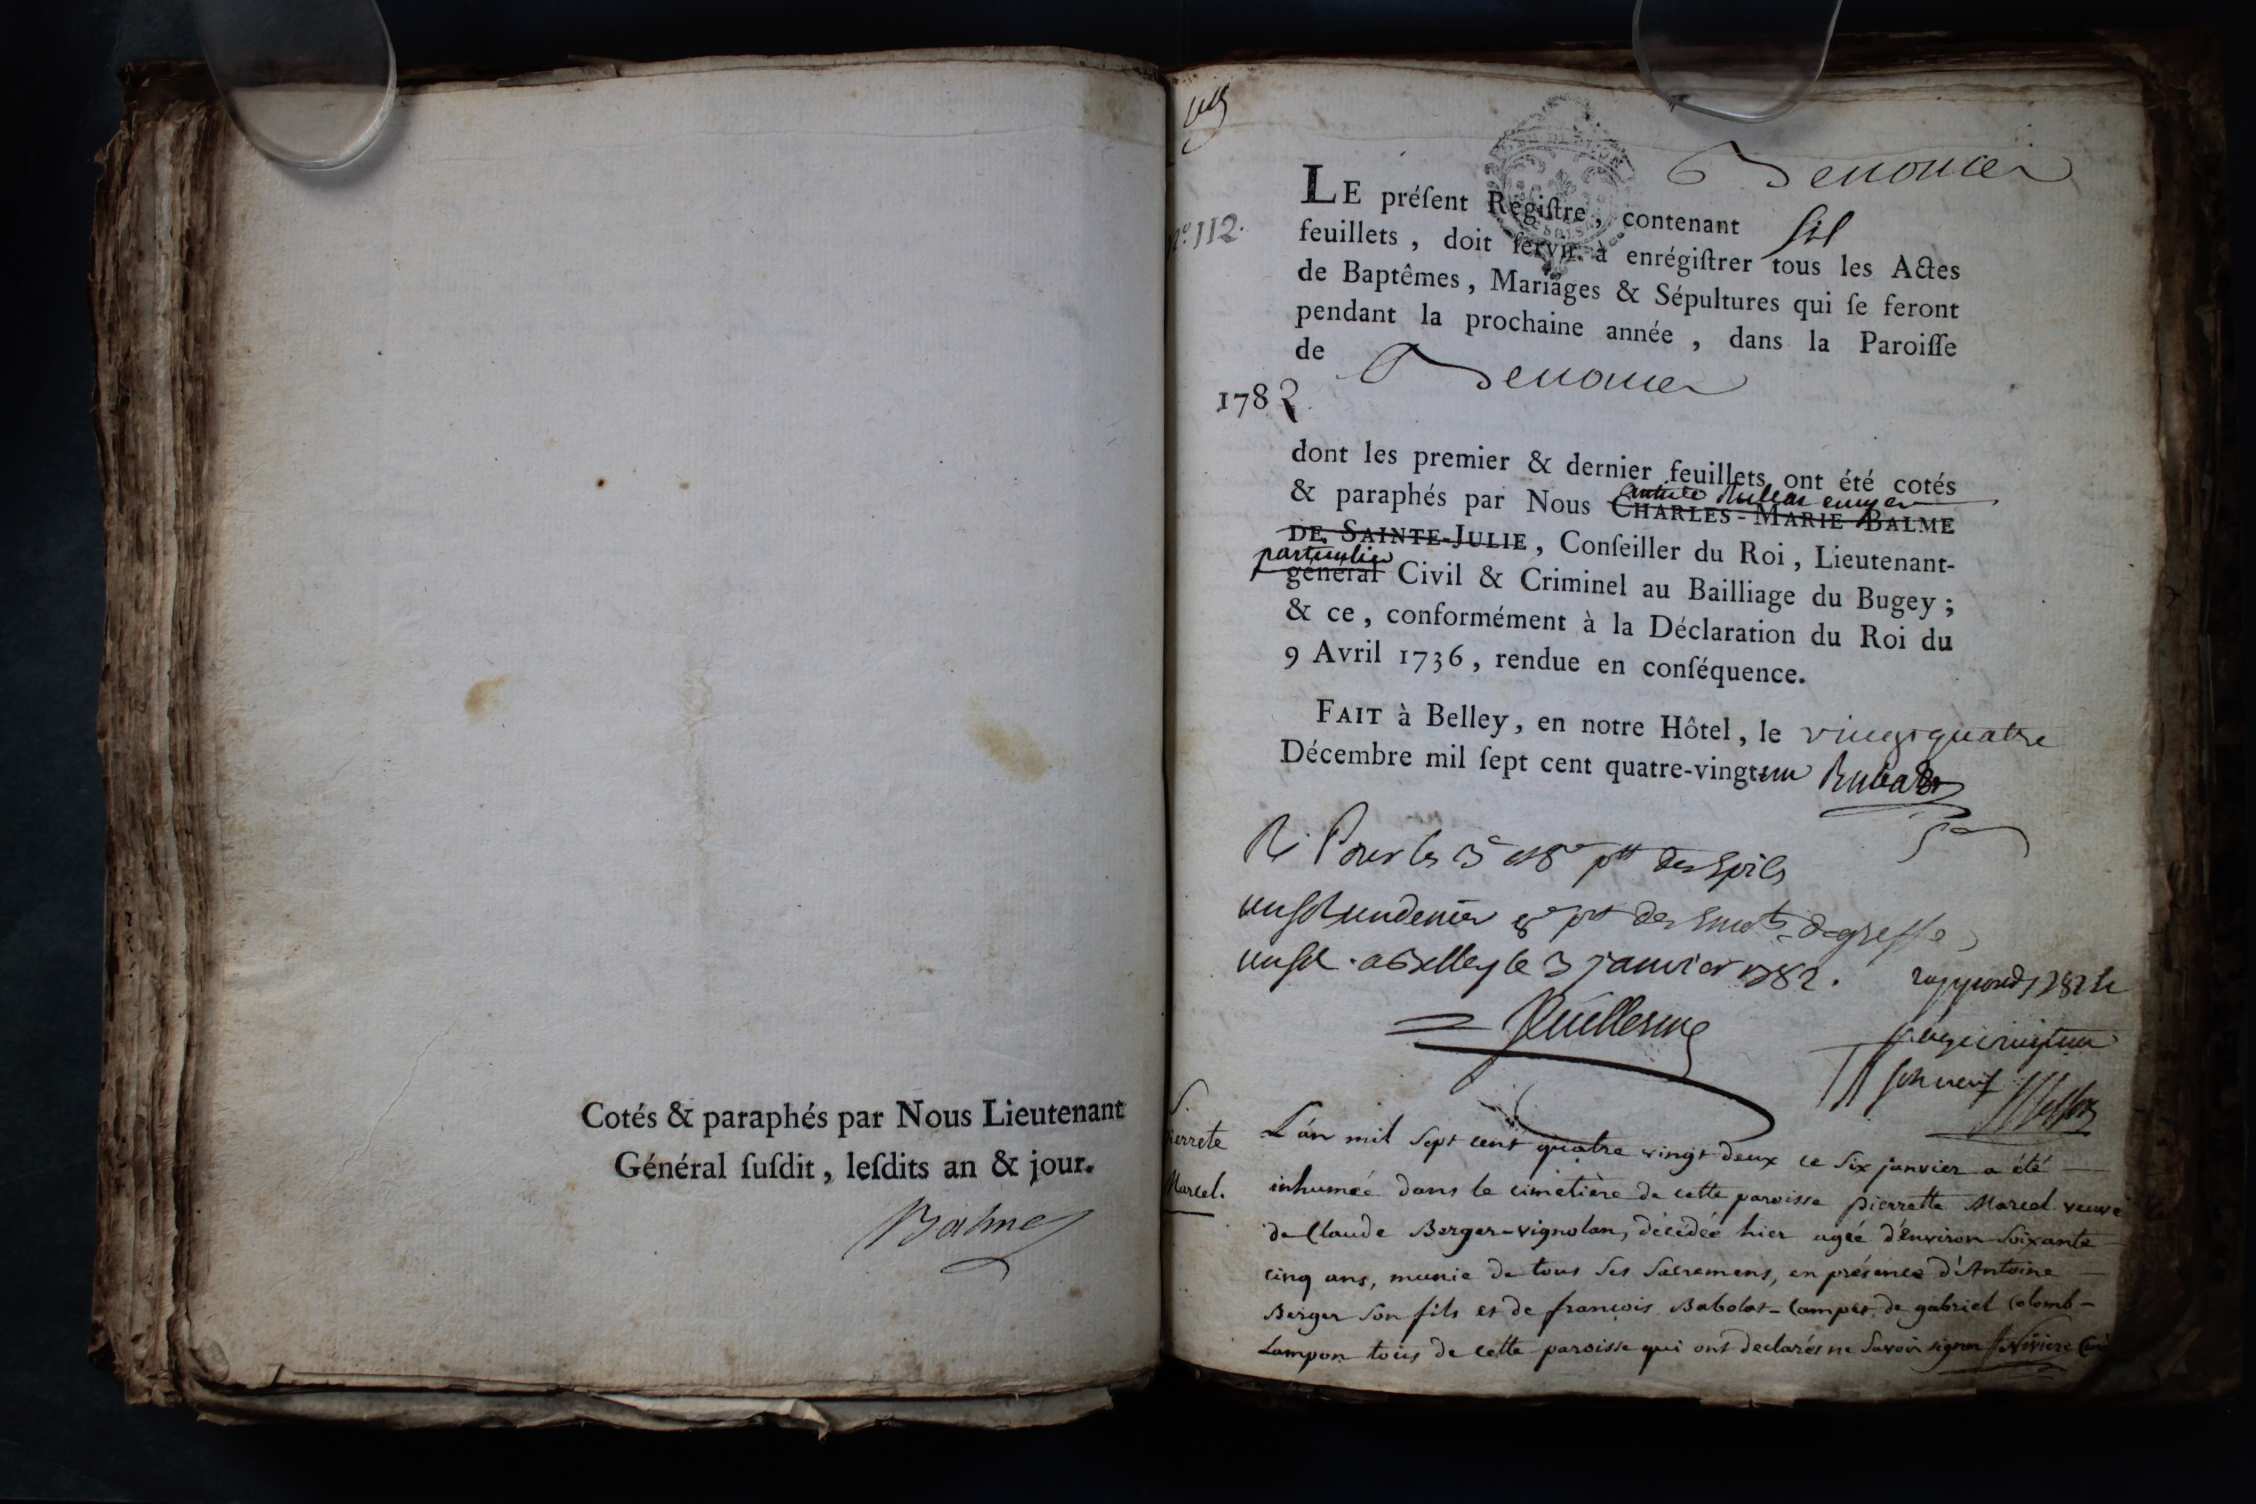 Cotés & paraphés par Nous Lieutenant
Général ſuſdit, leſdits an & jour.
Balme
Benonces
N.º 112.
LE préſent Régiſtre, contenant six
feuillets, doit ſervir à enrégiſtrer tous les Actes
de Baptêmes, Mariages & Sépultures qui ſe feront
pendant la prochaine année, dans la Paroiſſe
de Benonces
1782
dont les premier & dernier feuillets ont été cotés
& paraphés par Nous CHARLES-MARIE BALME
DE SAINTE-JULIE, Conſeiller du Roi, Lieutenant-
particulier
général Civil & Criminel au Bailliage du Bugey;
& ce, conformément à la Déclaration du Roi du
9 Avril 1736, rendue en conſéquence.
FAIT à Belley, en notre Hôtel, le vingt quatre
Décembre mil ſept cent quatre-vingt-un
Pour les
un sol un denier de greffe
un sol. a Belley le 3 janvier 1782.
Pierrete
Marcel.
L'an mil sept cent quatre vingt deux ce six janvier a été
inhumée dans le cimetière de cette paroisse pierrette Marcel veuve
de Claude Berger-vignolan, décédée hier agée d'environ soixante
cinq ans, munie de tous ses sacremens, en présence d'Antoine
Berger son fils et de françois Babolat-Camper de gabriel Colomb-
Lampon tous de cette paroisse qui ont declarés ne savoir signer